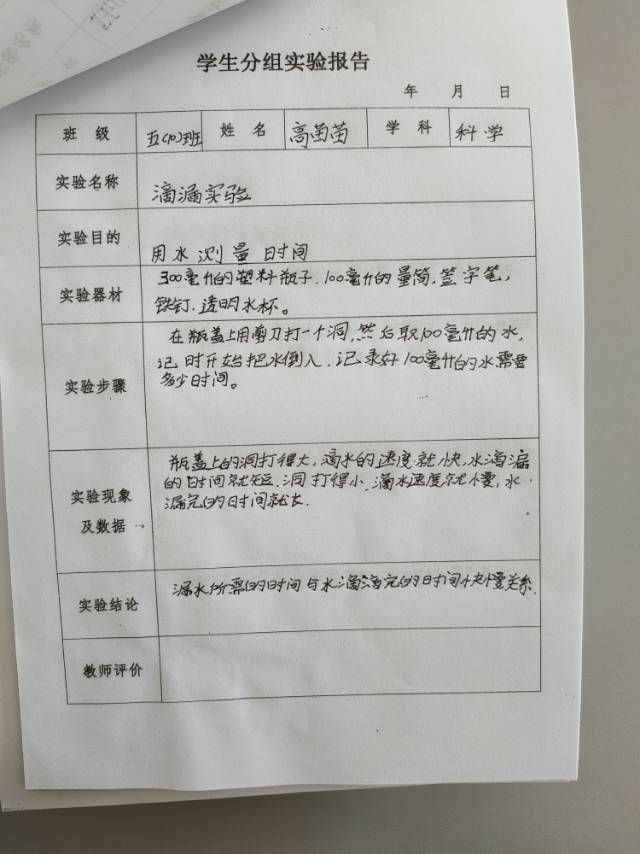 学生分组实验报告
年 月 日
班 级 五(10)班 姓 名 高苗苗 学 科 科学
实验名称 滴漏实验
实验目的 用水测量时间
实验器材 300毫升的塑料瓶子.100毫升的量筒,签字笔,
铁钉.透明水杯。
实验步骤 在瓶盖上用剪刀打一个洞,然后取100毫升的水,
记时开始把水倒入.记录好100毫升的水需要
多少时间。
实验现象
及数据
瓶盖上的洞打得大,滴水的速度就快,水滴漏
的时间就短.洞打得小.滴水速度就慢,水
漏完的时间就长.
实验结论 漏水所需的时间与水滴滴完的时间快慢关系.
教师评价